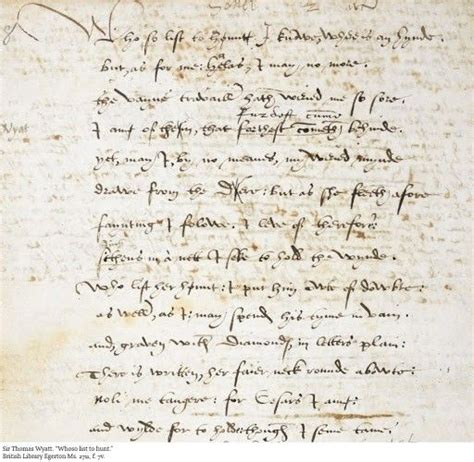 Who so list to hounte I knowe where is an hynde
but as for me: helas, I may no more.
the vayne travaill hath weried me so sore.
I ame of theim, that farthest cometh behinde
Wyat
yet may I, by no meanes, my weried mynde
drawe from the Diere: but as she fleeth afore
faynting I folowe. I leve of therefore
sethens in a nett I seke to hold the wynde.
Who list her hount: I put him owte of dowbte:
as well, as I: may spend his tyme in vain.
and, graven with Diamonds, in letters plain:
There is written, her faier neck rounde abowte:
noli me tangere: for Cesars I ame:
and wylde for to hold: though I seme tame.
Sir Thomas Wyatt. "Whoso list to hunt."
British Library Egerton Ms. 2711, f. 7v.